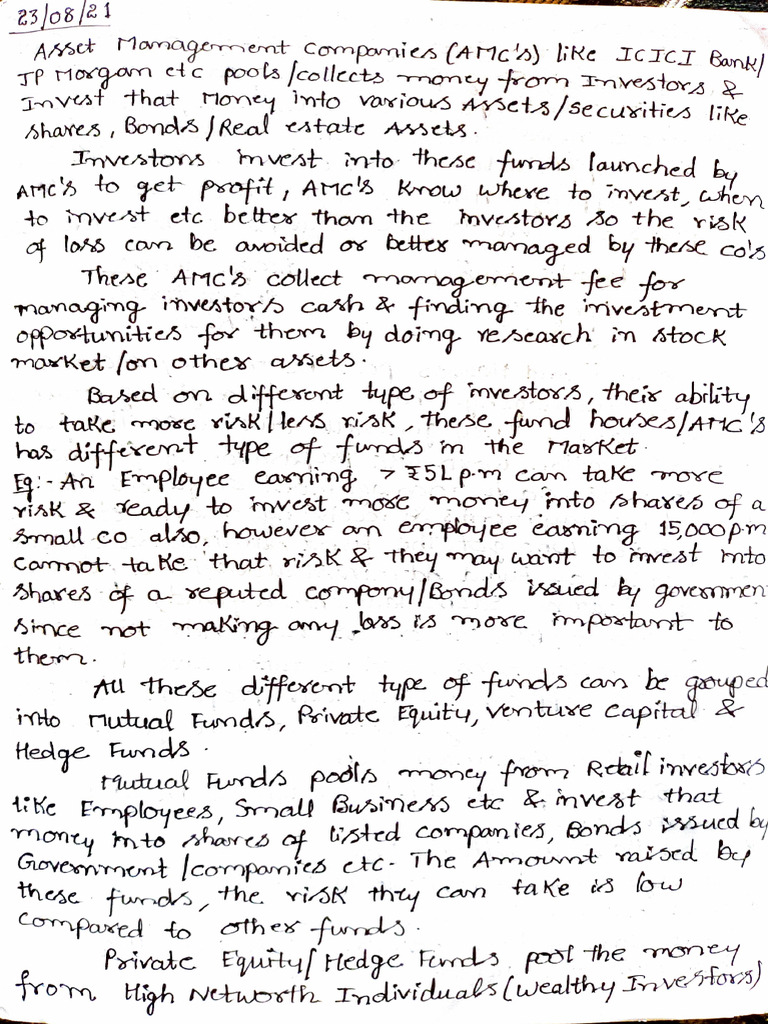 23/08/21
Asset Management Companies (AMC's) like ICICI Bank/
JP Morgan etc pools/collects money from Investors &
Invest that Money into various Assets/securities like
shares, Bonds/Real estate Assets.
Investors invest into these funds launched by
AMC's to get profit, AMC's know where to invest, when
to invest etc better than the investors so the risk
of loss can be avoided or better managed by these co's
These AMC's collect management fee for
managing investor's cash & finding the investment
opportunities for them by doing research in stock
market/on other assets.
Based on different type of investors, their ability
to take more risk/less risk, these fund houses/AMC's
has different type of funds in the Market.
Eg:- An Employee earning > ₹5L p.m can take more
risk & ready to invest more money into shares of a
small co also, however an employee earning 15,000 p.m
cannot take that risk & they may want to invest into
shares of a reputed company/Bonds issued by governmen
since not making any loss is more important to
them.
All these different type of funds can be grouped
into Mutual Funds, Private Equity, Venture Capital &
Hedge Funds.
Mutual Funds pools money from Retail investors
like Employees, Small Business etc & invest that
money into shares of listed companies, Bonds issued by
Government/companies etc. The Amount raised by
these funds, the risk they can take is low
compared to other funds.
Private Equity/Hedge Funds pool the money
from High Networth Individuals (Wealthy Investors)